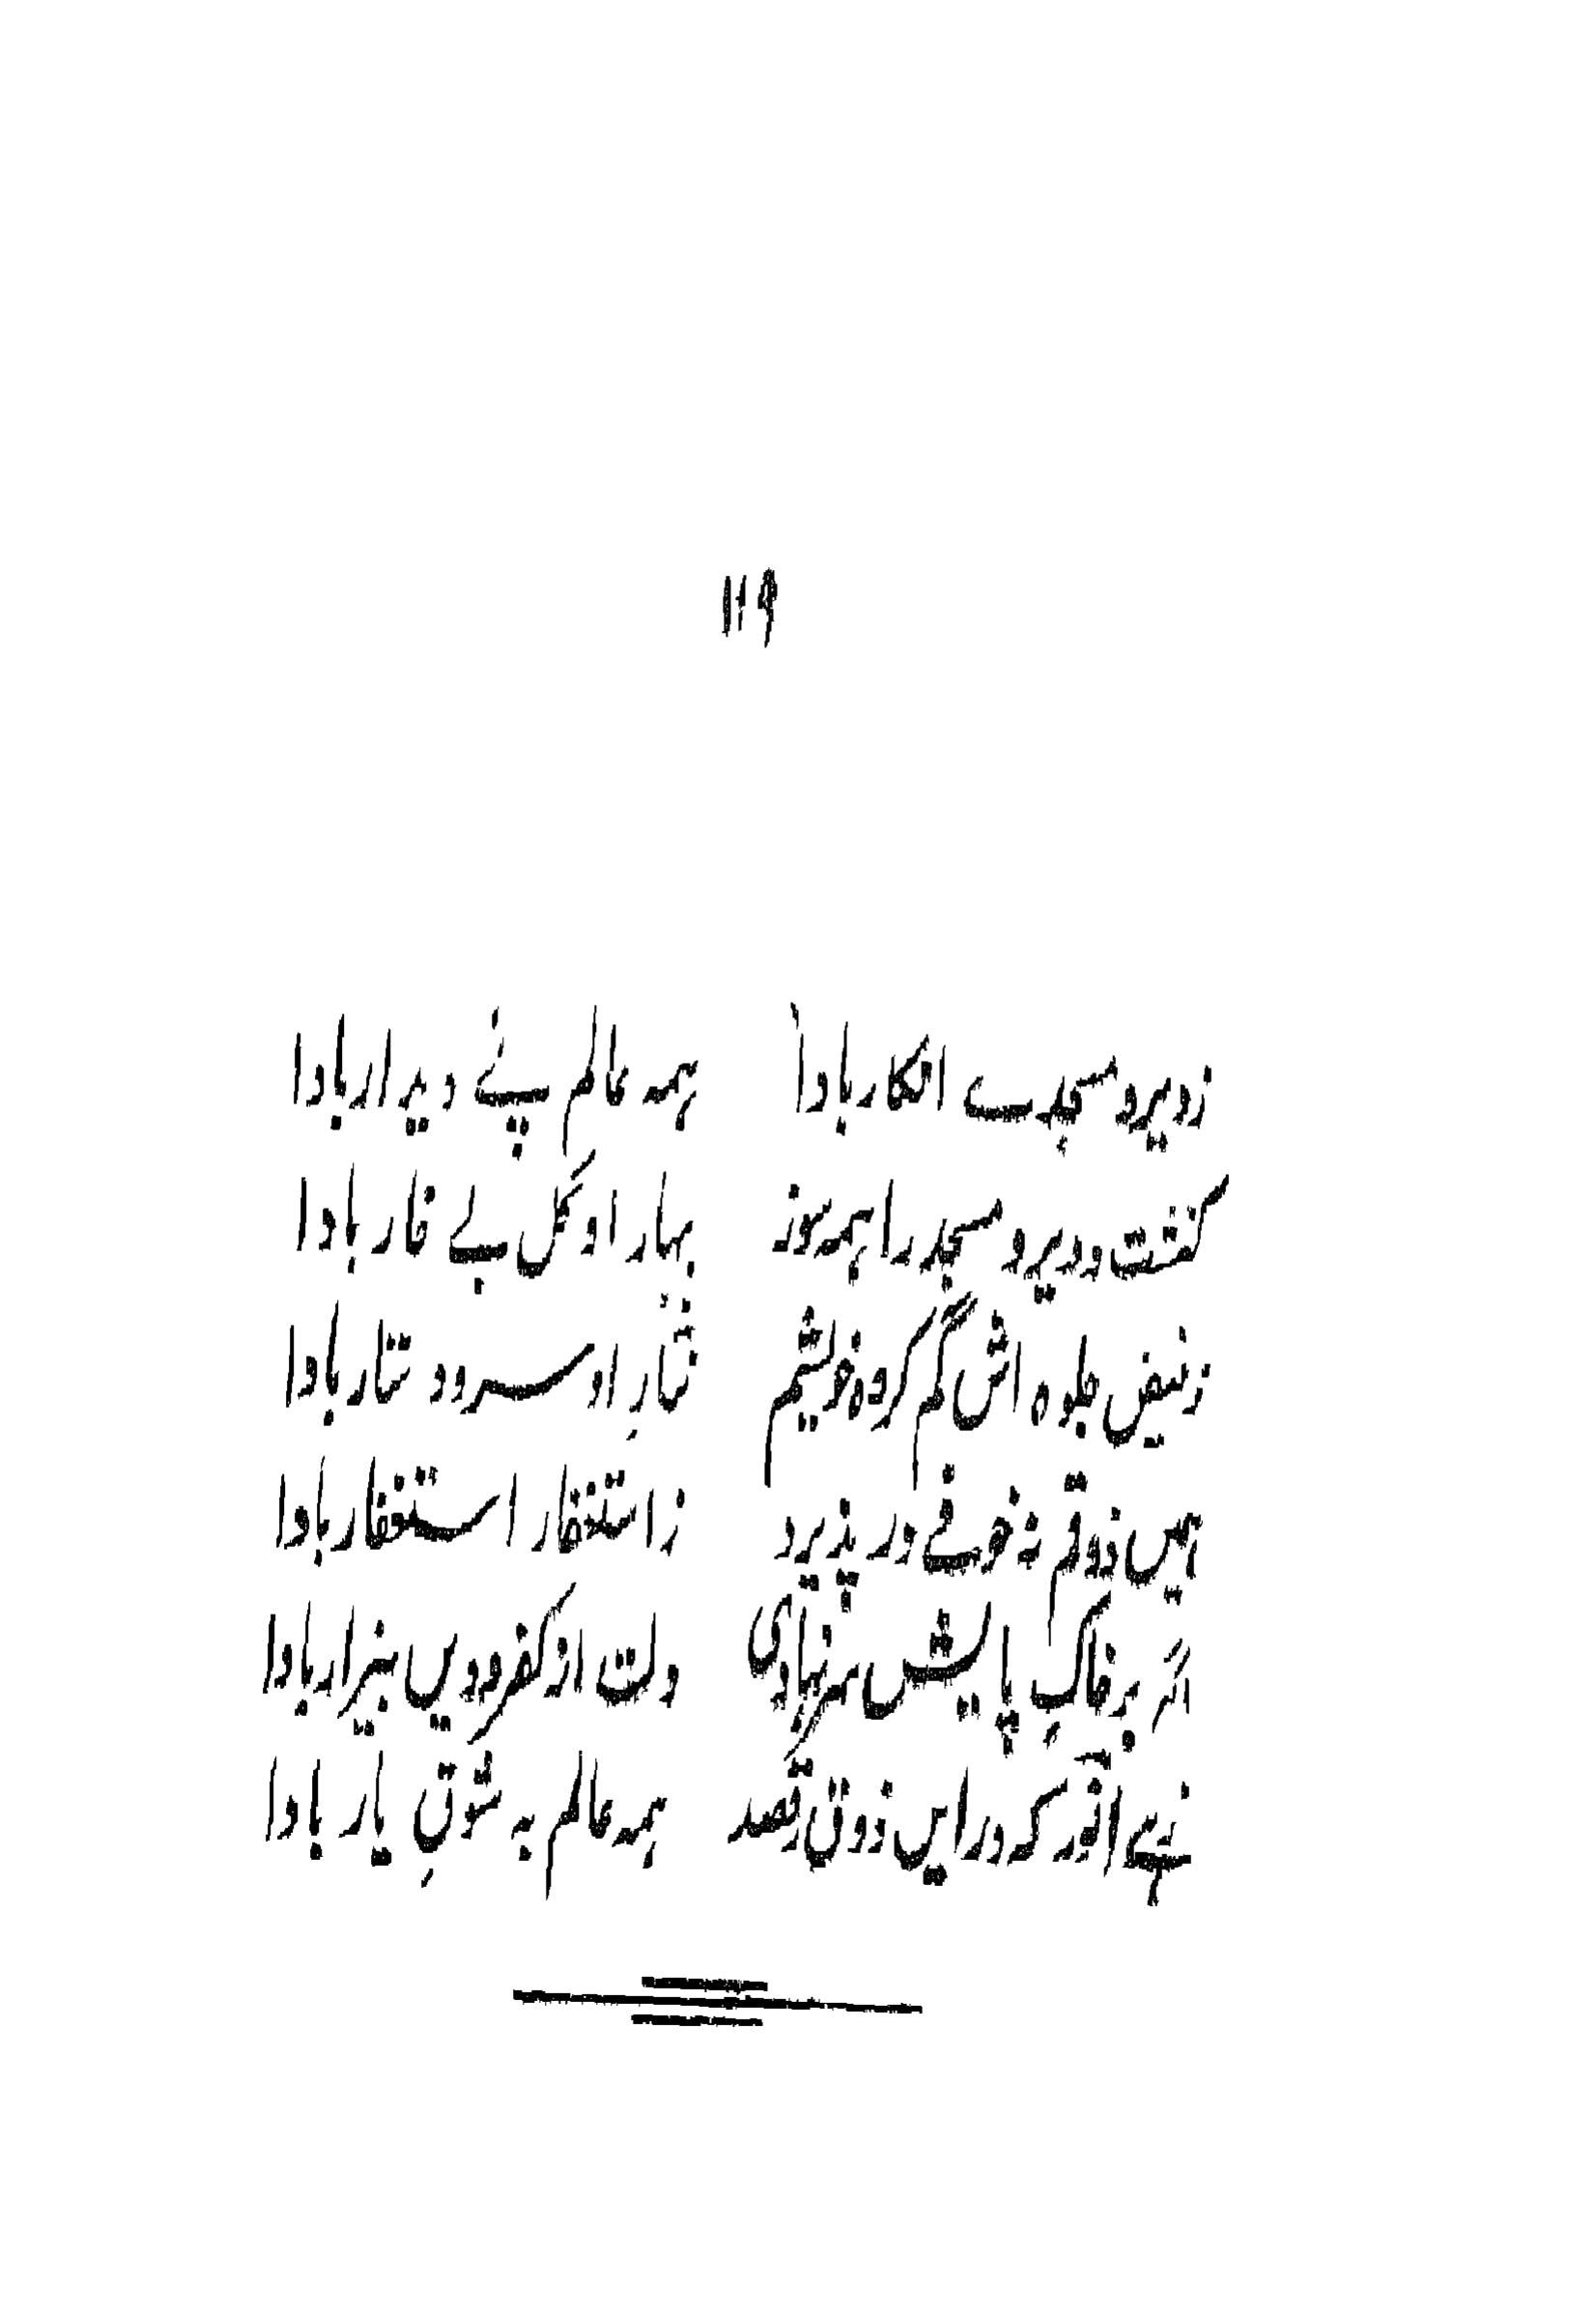 ۱۱۹
ز دیر و مسجدے افکار بادا ہمہ عالم پئے دیدار بادا
کنشت و دیر و مسجد را ہمہ سوز بہار او گل بے خار بادا
ز فیض جلوہ اش گم کردہ خویشم نثارِ او سرود تتار بادا
ہمیں ذوقم نہ خوفے در پذیرد ز استغفار استغفار بادا
اگر بر خاکِ پایش سر نہادی دلت از کفر و دیں بیزار بادا
زہے انور کہ در ایں ذوق رقصد ہمہ عالم بہ شوقِ یار بادا